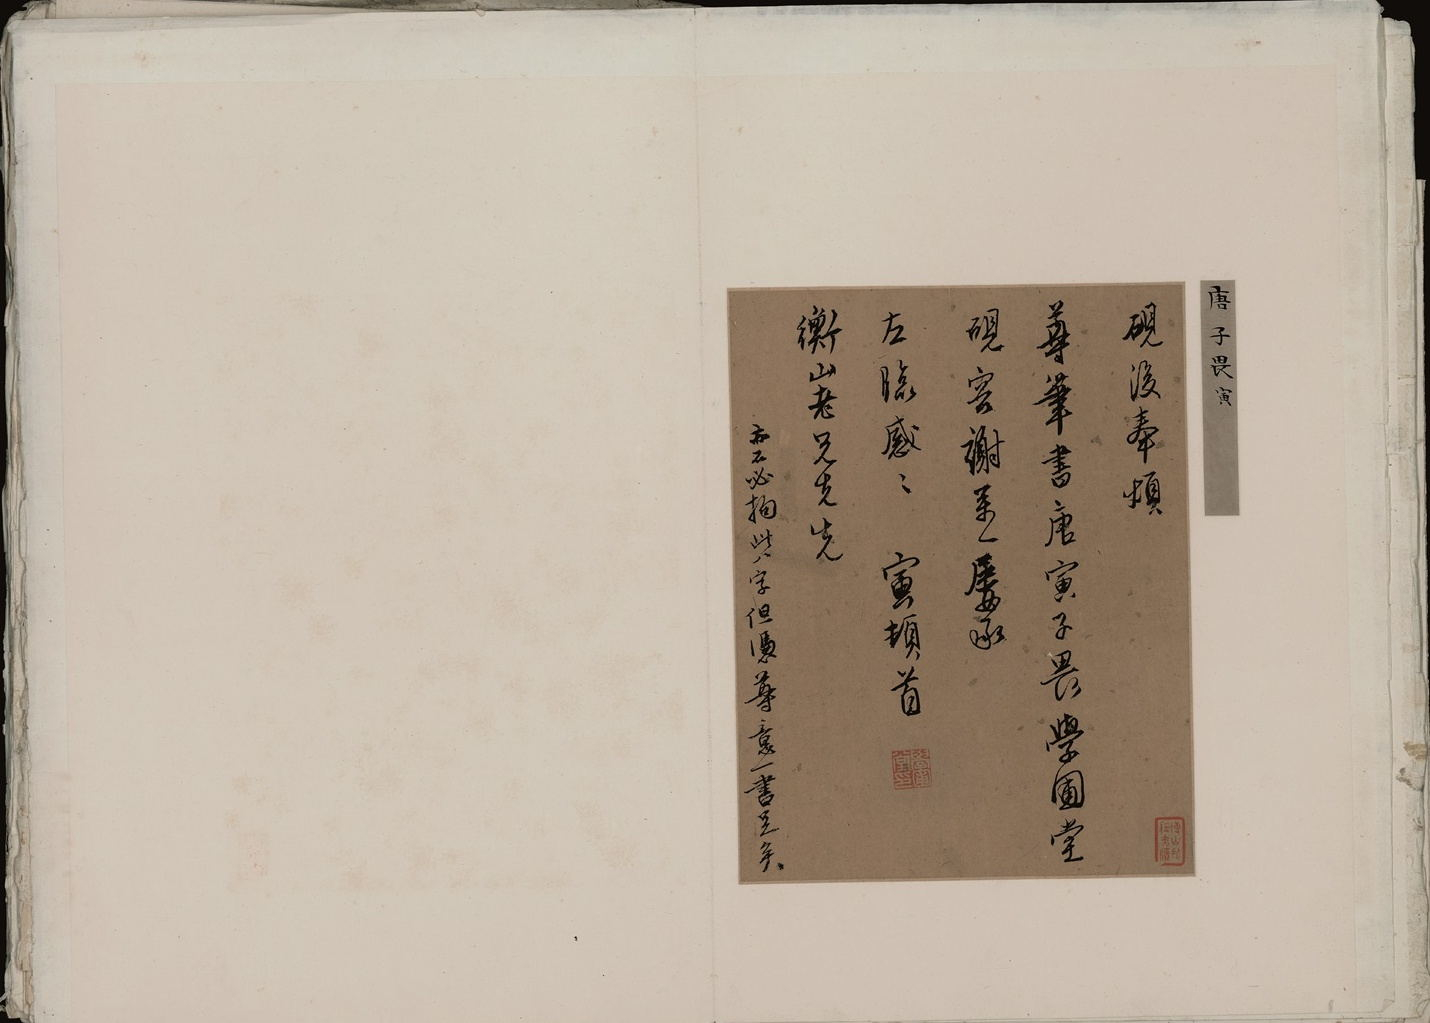 唐子畏寅
硯後奉煩
尊筆書唐寅子畏學圃堂
硯容謝萬一屢承
左臨感〻 寅頓首
衡山老兄先生
亦不必拘此八字但憑尊意一書足矣